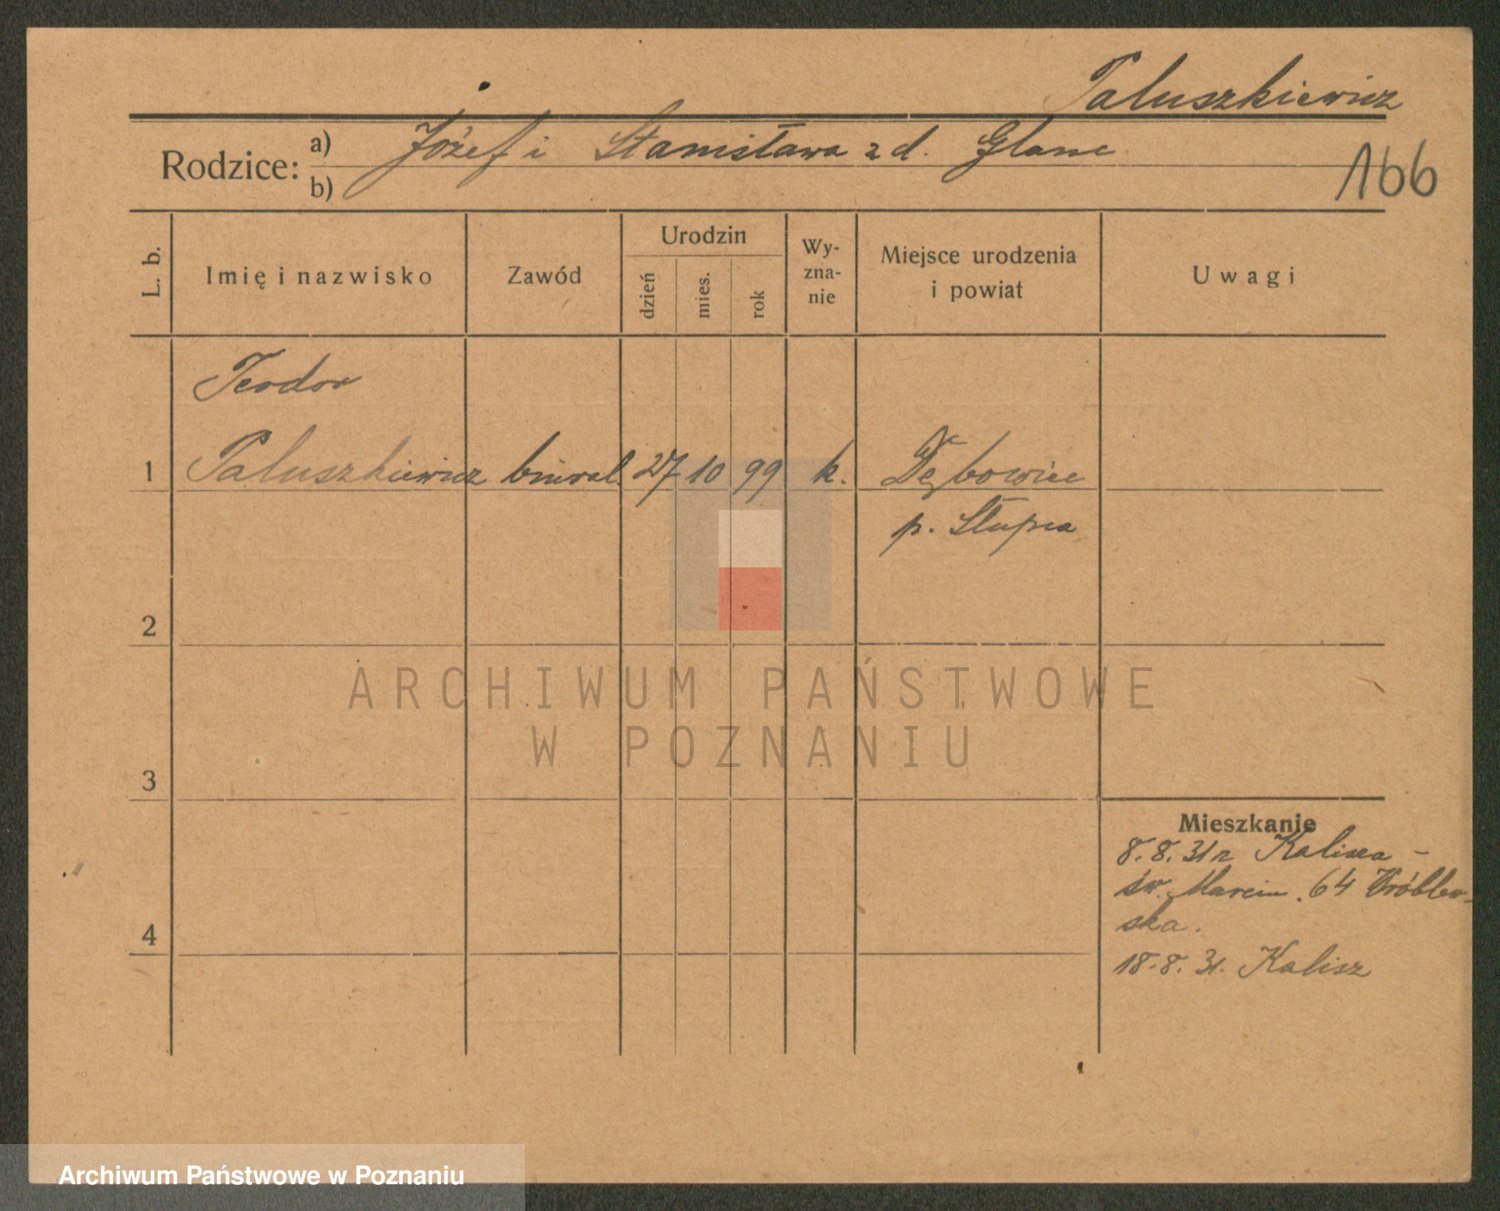 Paluszkiewicz
Rodzice: a) Józef i Stanisława z d. Glanc
b)
166
L. b.
Imię i nazwisko
Zawód
Urodzin
dzień
mies.
rok
Wy-
zna-
nie
Miejsce urodzenia
i powiat
Uwagi
Teodor
1 Paluszkiewicz biural. 27 10 99 k. Dębowiec
p. Słupca
2
3
4
Mieszkanie
8.8.31 z Kalisza –
św. Marcin. 64 Wróblew-
ska.
18.8.31. Kalisz
ARCHIWUM PAŃSTWOWE
W POZNANIU
Archiwum Państwowe w Poznaniu